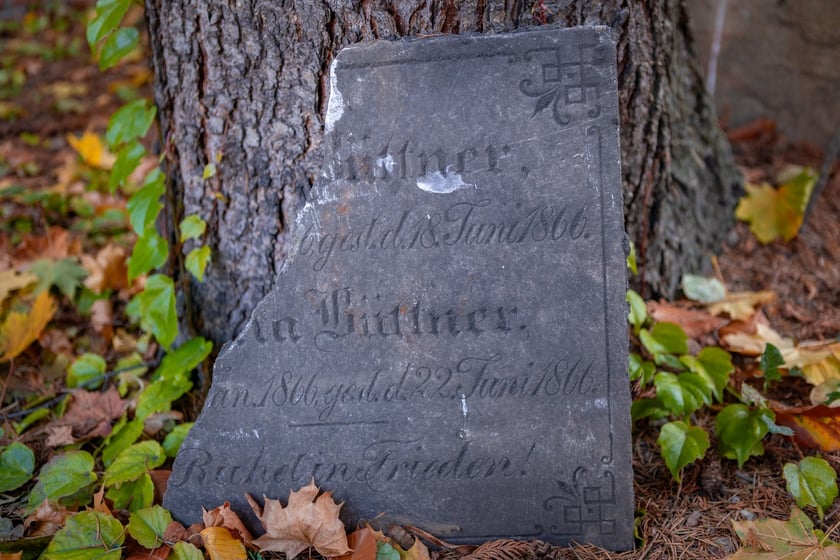 Büttner,
6 gest. d. 18. Juni 1866.
na Büttner,
än. 1866 gest. d. 22. Juni 1866.
Ruhet in Frieden!